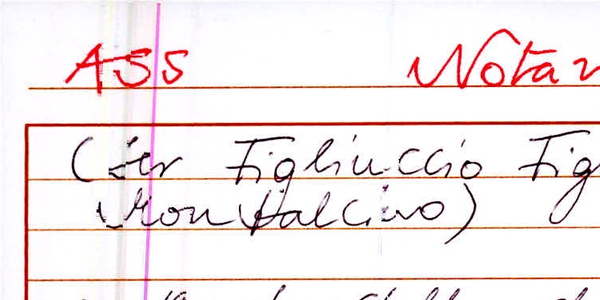 ASS Notar
(ser Figliuccio Fig
Montalcino)